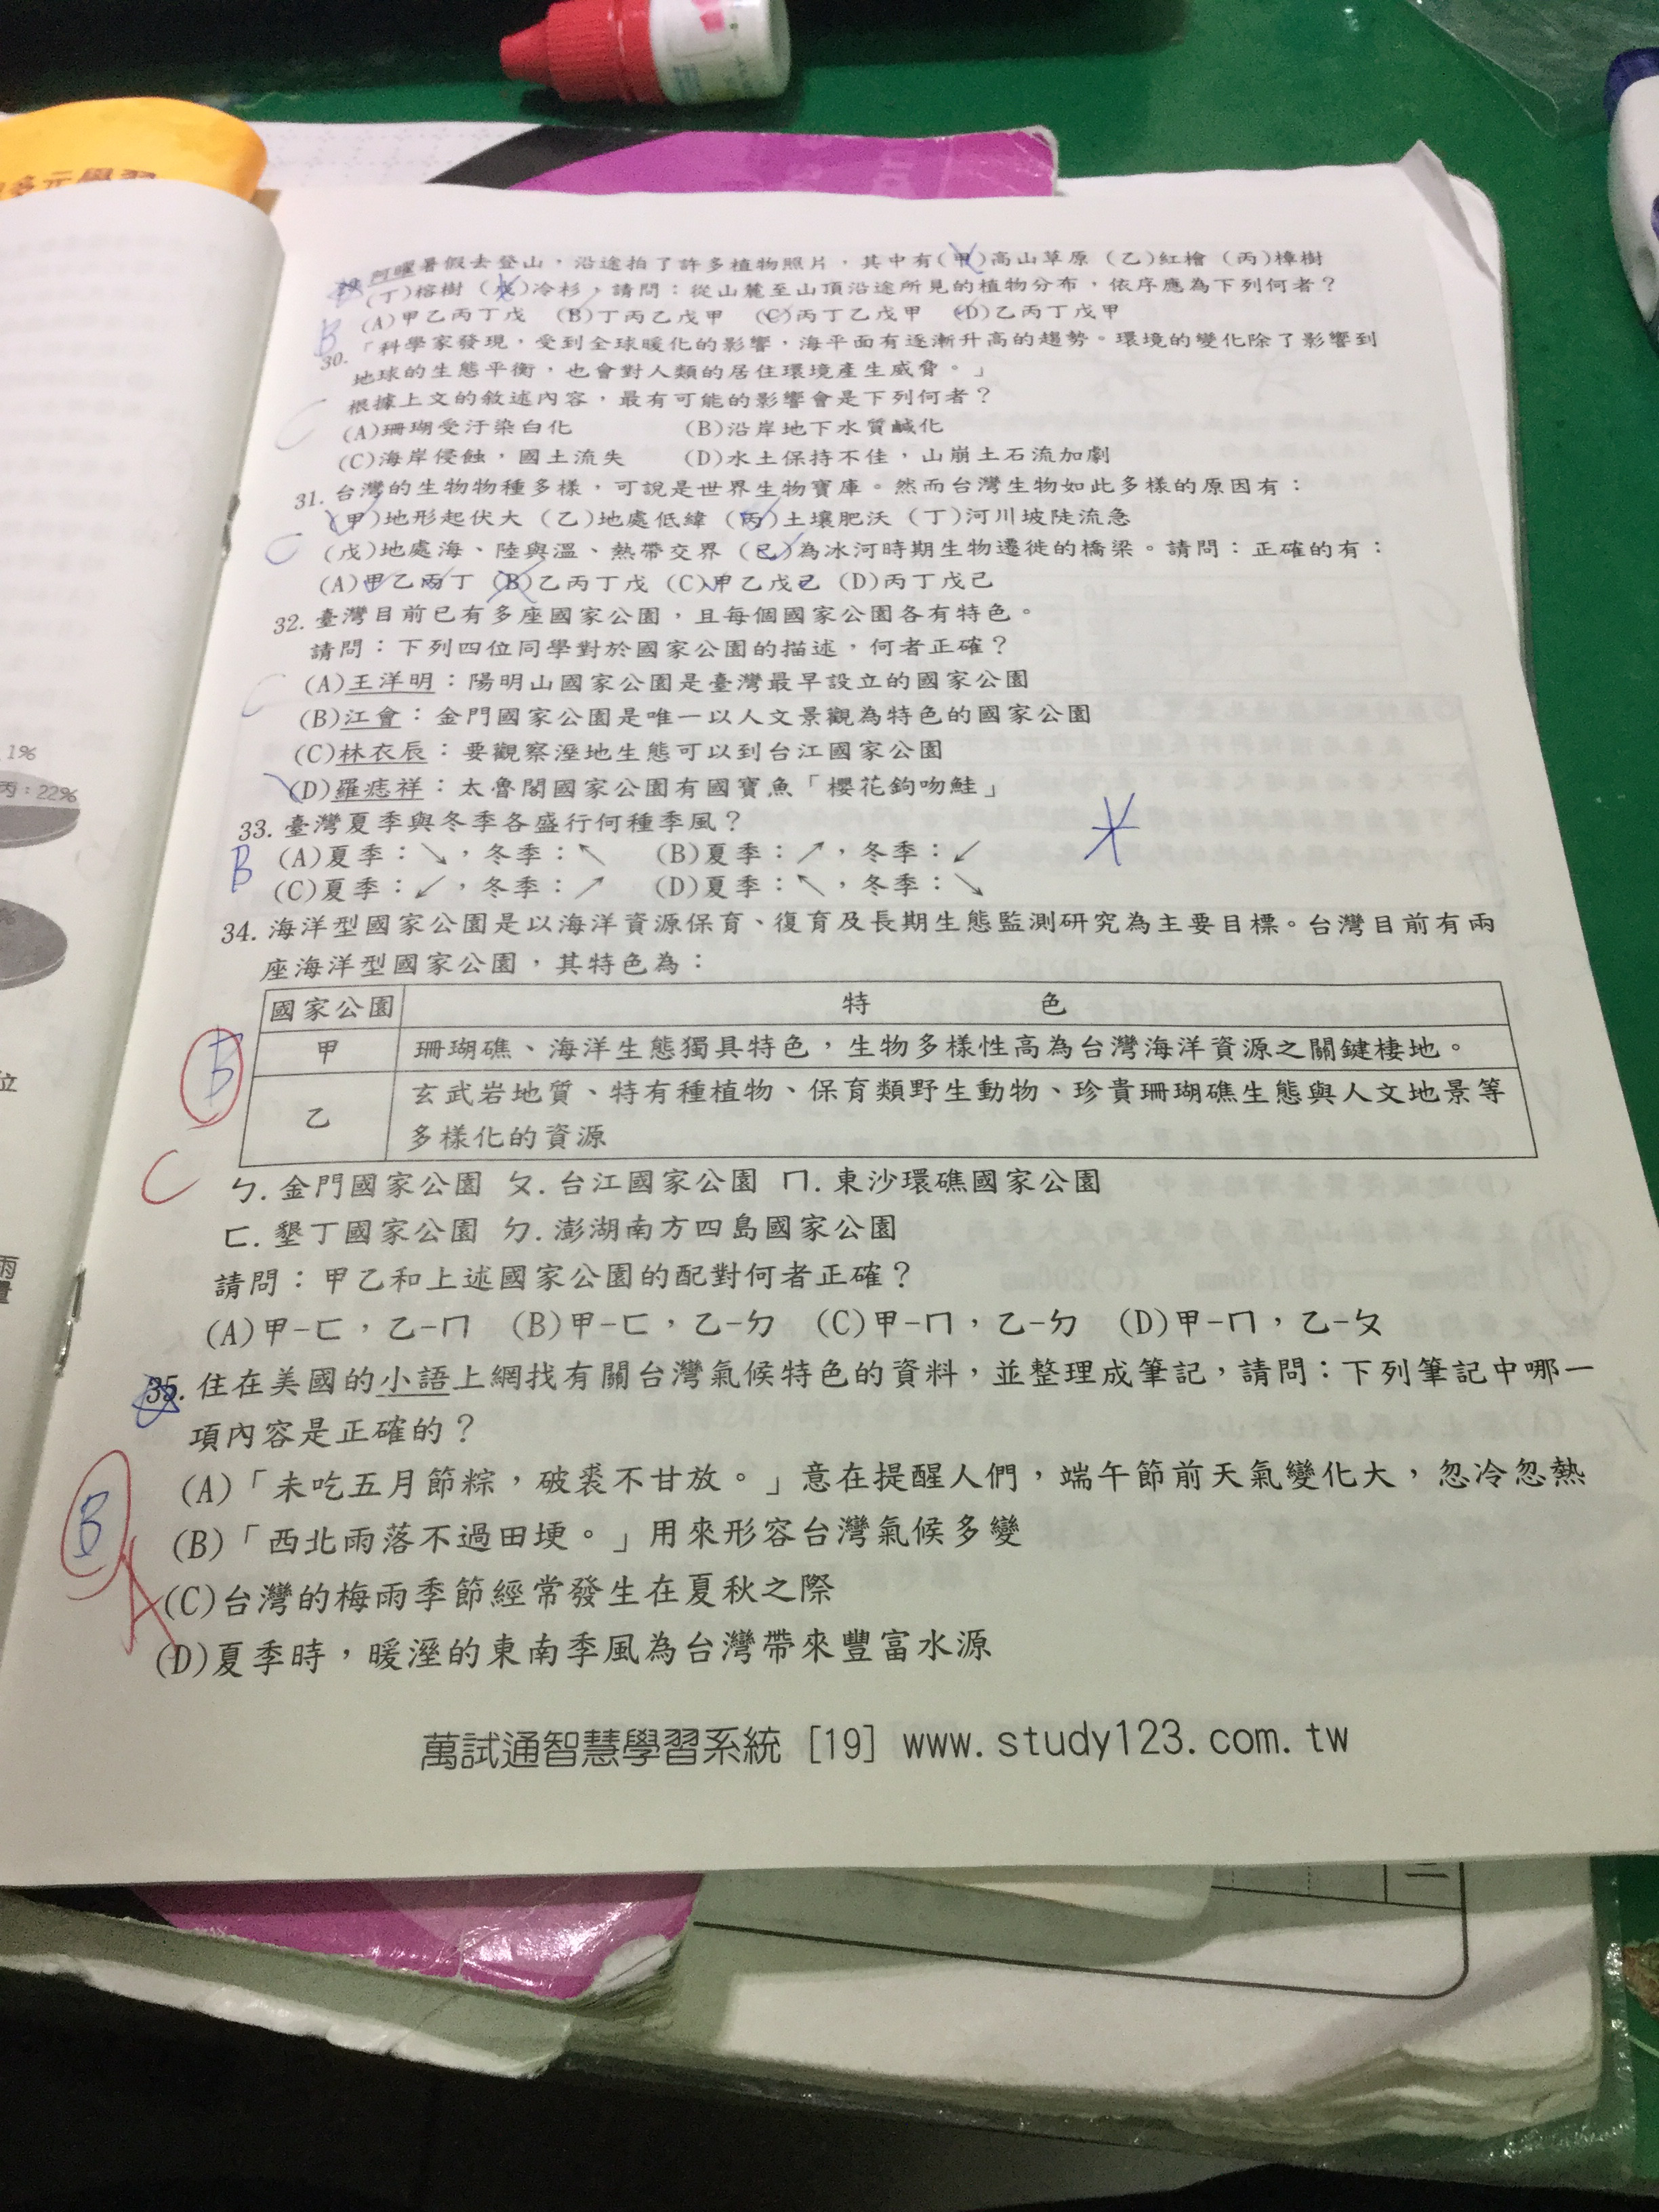 多元學習
1%
丙：22%
%
位
雨
量
29. 阿曜暑假去登山，沿途拍了許多植物照片，其中有(甲)高山草原 (乙)紅檜 (丙)樟樹
(丁)榕樹 (戊)冷杉，請問：從山麓至山頂沿途所見的植物分布，依序應為下列何者？
(A)甲乙丙丁戊 (B)丁丙乙戊甲 (C)丙丁乙戊甲 (D)乙丙丁戊甲
B
30. 「科學家發現，受到全球暖化的影響，海平面有逐漸升高的趨勢。環境的變化除了影響到
地球的生態平衡，也會對人類的居住環境產生威脅。」
根據上文的敘述內容，最有可能的影響會是下列何者？
C
(A)珊瑚受汙染白化 (B)沿岸地下水質鹹化
(C)海岸侵蝕，國土流失 (D)水土保持不佳，山崩土石流加劇
31. 台灣的生物物種多樣，可說是世界生物寶庫。然而台灣生物如此多樣的原因有：
(甲)地形起伏大 (乙)地處低緯 (丙)土壤肥沃 (丁)河川坡陡流急
C
(戊)地處海、陸與溫、熱帶交界 (己)為冰河時期生物遷徙的橋梁。請問：正確的有：
(A)甲乙丙丁 (B)乙丙丁戊 (C)甲乙戊己 (D)丙丁戊己
32. 臺灣目前已有多座國家公園，且每個國家公園各有特色。
請問：下列四位同學對於國家公園的描述，何者正確？
C
(A)王洋明：陽明山國家公園是臺灣最早設立的國家公園
(B)江會：金門國家公園是唯一以人文景觀為特色的國家公園
(C)林衣辰：要觀察溼地生態可以到台江國家公園
(D)羅痣祥：太魯閣國家公園有國寶魚「櫻花鉤吻鮭」
33. 臺灣夏季與冬季各盛行何種季風？
B
(A)夏季：↘，冬季：↖ (B)夏季：↗，冬季：↙
(C)夏季：↙，冬季：↗ (D)夏季：↖，冬季：↘
34. 海洋型國家公園是以海洋資源保育、復育及長期生態監測研究為主要目標。台灣目前有兩
座海洋型國家公園，其特色為：
國家公園 特 色
B
甲 珊瑚礁、海洋生態獨具特色，生物多樣性高為台灣海洋資源之關鍵棲地。
乙 玄武岩地質、特有種植物、保育類野生動物、珍貴珊瑚礁生態與人文地景等
多樣化的資源
C
ㄅ. 金門國家公園 ㄆ. 台江國家公園 ㄇ. 東沙環礁國家公園
ㄈ. 墾丁國家公園 ㄉ. 澎湖南方四島國家公園
請問：甲乙和上述國家公園的配對何者正確？
(A)甲-ㄈ，乙-ㄇ (B)甲-ㄈ，乙-ㄉ (C)甲-ㄇ，乙-ㄉ (D)甲-ㄇ，乙-ㄆ
35. 住在美國的小語上網找有關台灣氣候特色的資料，並整理成筆記，請問：下列筆記中哪一
項內容是正確的？
(A)「未吃五月節粽，破裘不甘放。」意在提醒人們，端午節前天氣變化大，忽冷忽熱
B
(B)「西北雨落不過田埂。」用來形容台灣氣候多變
A
(C)台灣的梅雨季節經常發生在夏秋之際
(D)夏季時，暖溼的東南季風為台灣帶來豐富水源
萬試通智慧學習系統 [19] www.study123.com.tw